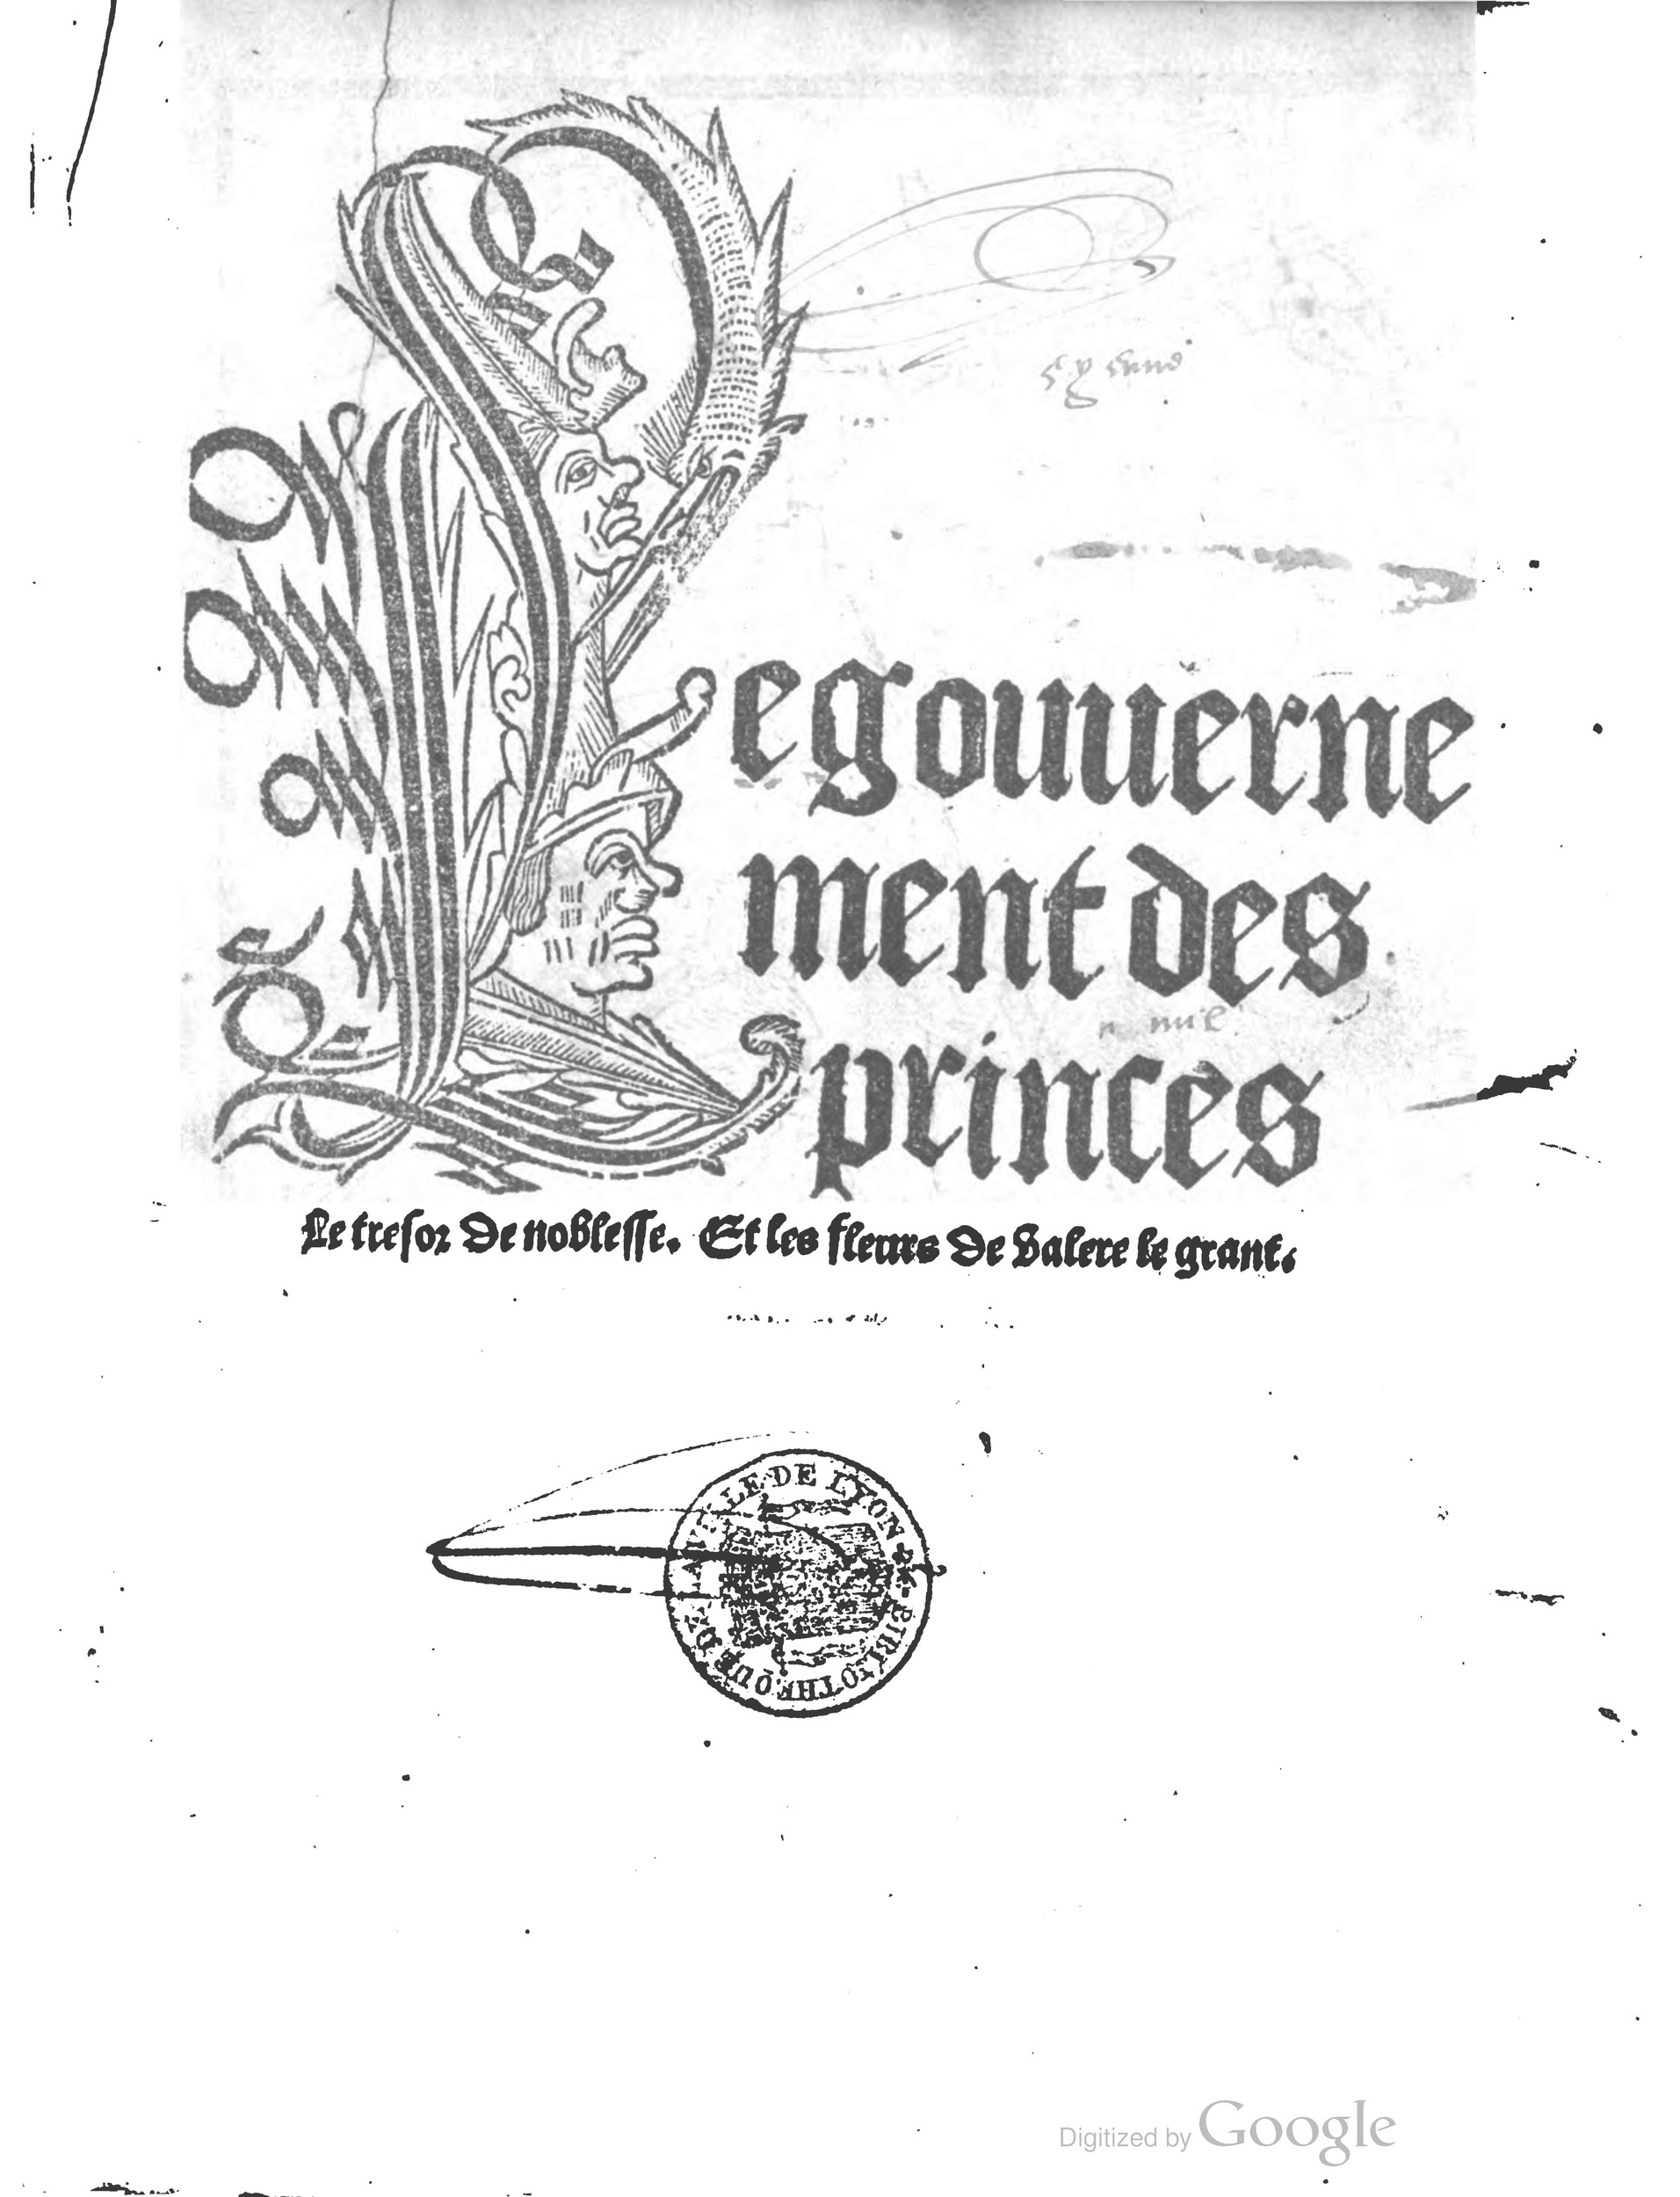 Le gouuerne
ment des
princes
Le tresor de noblesse. Et les fleurs de Valere le grant.
BIBLIOTHEQUE DE LA VILLE DE LYON
Digitized by Google